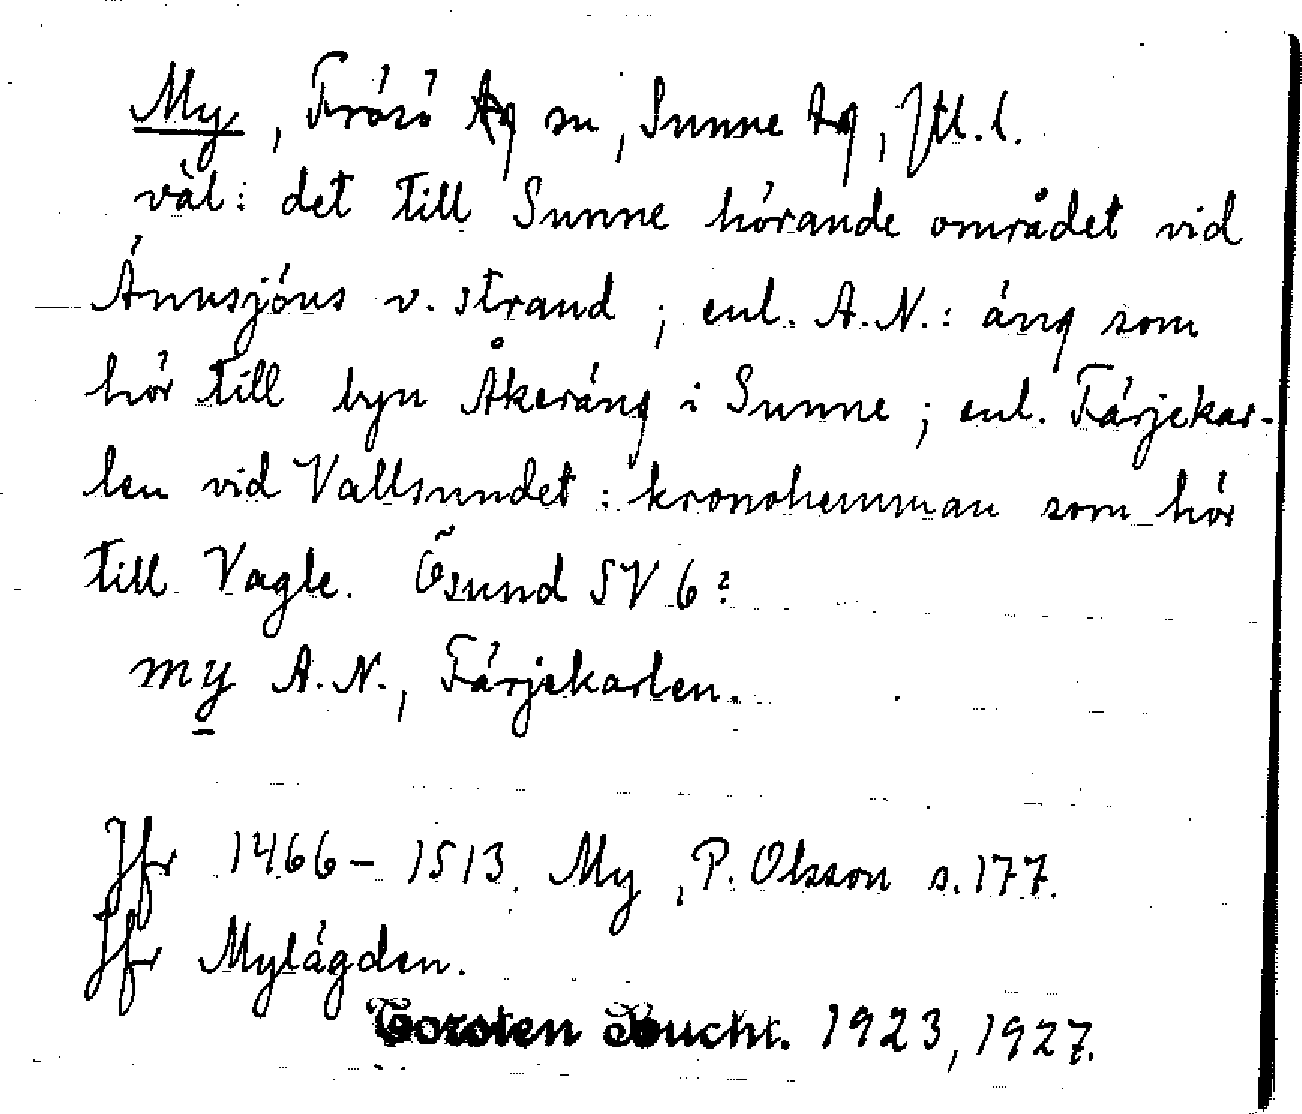 My, Frösö tg sn, Sunne tg, Jtl. l.
väl: det till Sunne hörande området vid
Ännsjöns v. strand; enl. A.N.: äng som
hör till byn Åkeräng i Sunne; enl. Färjekar-
len vid Vallsundet: kronohemman som hör
till Vagle. Ösund SV 6?
my A.N., Färjekarlen.
Jfr 1466-1513 My, P. Olsson s. 177.
Jfr Mylägden.
Torsten Bucht. 1923, 1927.